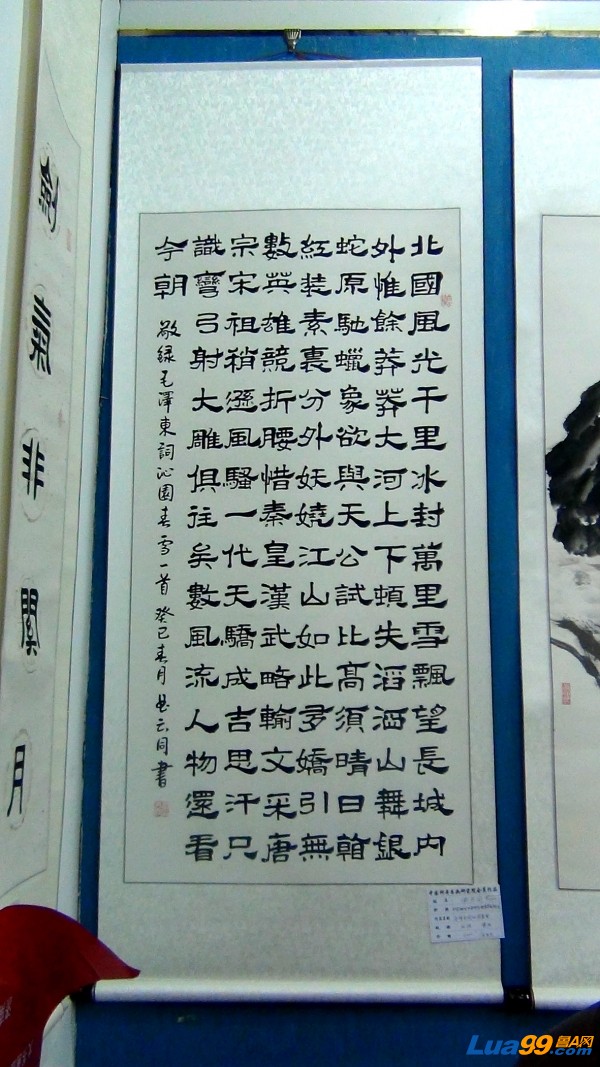 北國風光千里冰封萬里雪飄望長城内
外惟餘莽莽大河上下頓失滔滔山舞銀
蛇原馳蠟象欲與天公試比高須晴日看
紅裝素裹分外妖嬈江山如此多嬌引無
數英雄競折腰惜秦皇漢武略輸文采唐
宗宋祖稍遜風騷一代天驕成吉思汗只
識彎弓射大雕俱往矣數風流人物還看
今朝
敬録毛澤東詞沁園春雪一首 癸巳春月 云同書
氣非關月
Lua99.com
鲁A网